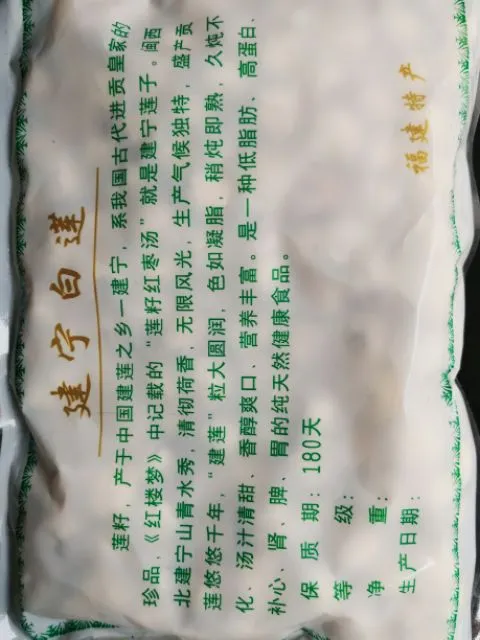 福建特产
建宁白莲
莲籽，产于中国建莲之乡—建宁，系我国古代进贡皇家的
珍品，《红楼梦》中记载的“莲籽红枣汤”就是建宁莲子。闽西
北建宁山青水秀，清彻荷香，无限风光，生产气候独特，盛产贡
莲悠悠千年，“建莲”粒大圆润，色如凝脂，稍炖即熟，久炖不
化、汤汁清甜、香醇爽口、营养丰富。是一种低脂肪、高蛋白、
补心、肾、脾、胃的纯天然健康食品。
保质期：180天
等级：
净重：
生产日期：